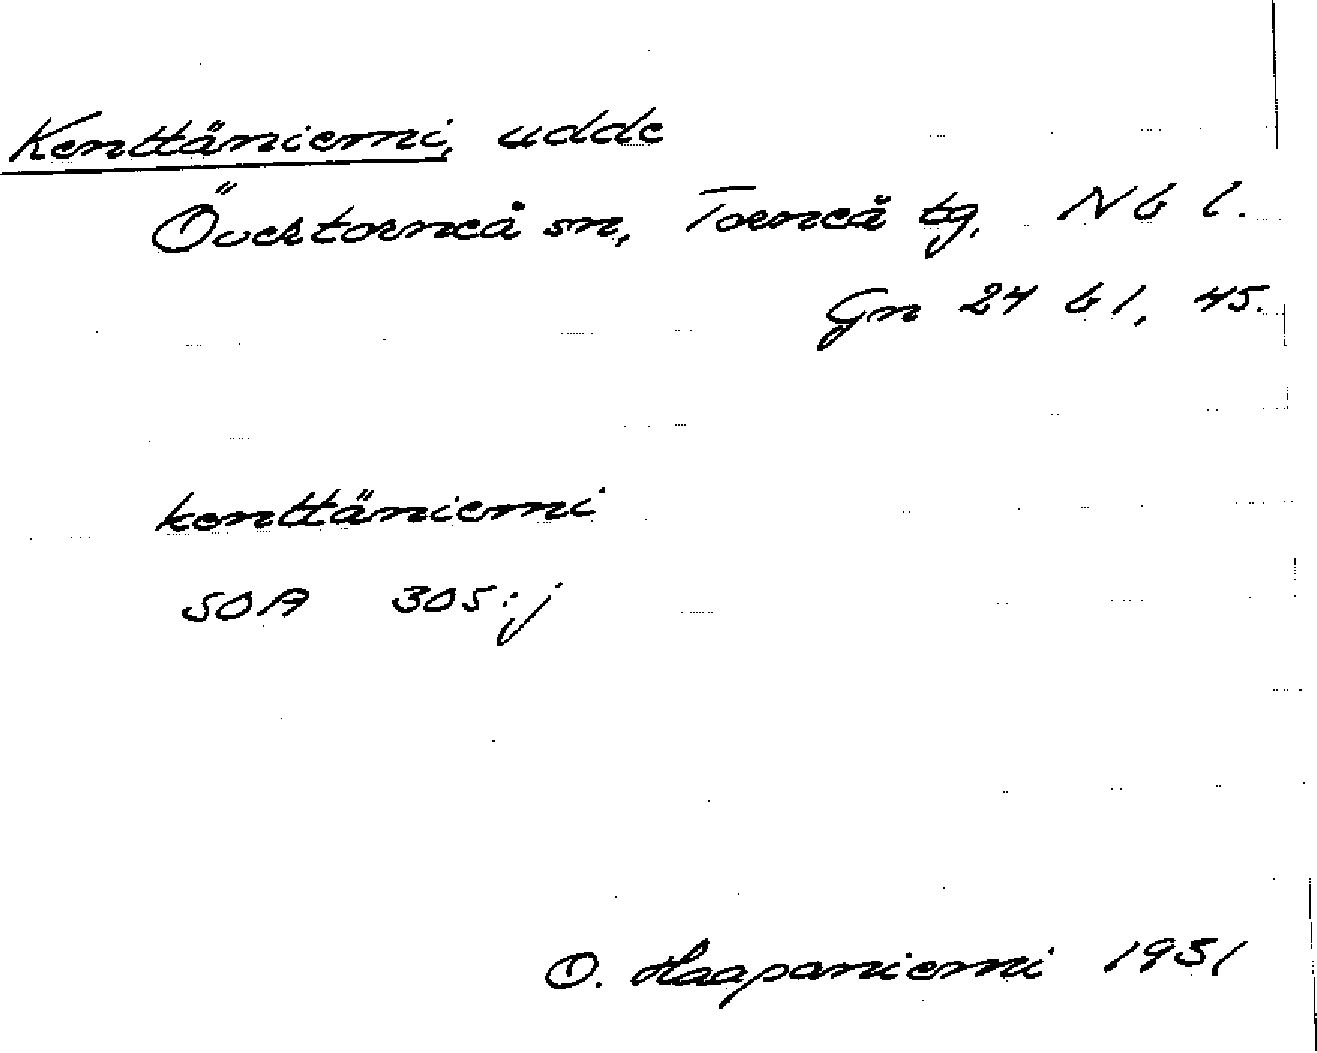 Kenttäniemi, udde
Övertorneå sn, Torneå tg, Nb l.
Gn 24 b 1, 45.
kenttäniemi
SOA 305:j
O. Haapaniemi 1951